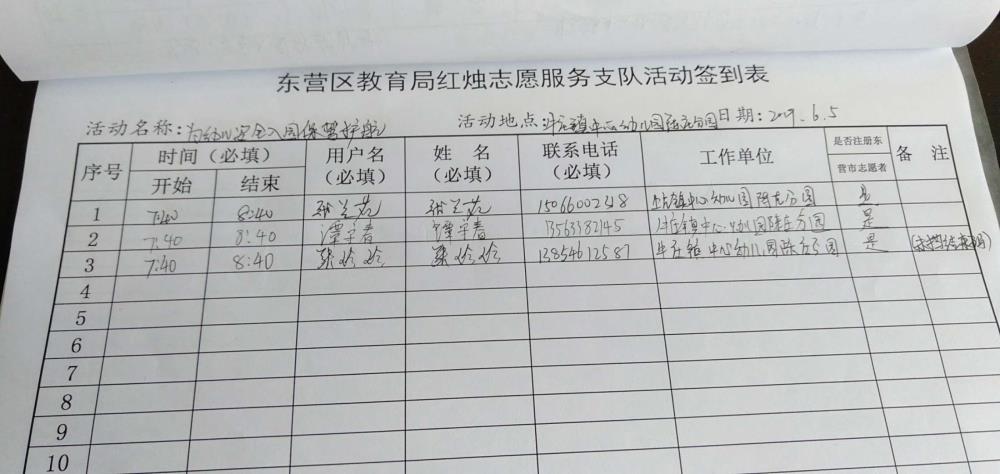 东营区教育局红烛志愿服务支队活动签到表
活动名称:为幼儿安全入园保驾护航 活动地点:牛庄镇中心幼儿园陈庄分园 日期:2019.6.5
序号 时间(必填) 用户名(必填) 姓 名(必填) 联系电话(必填) 工作单位 是否注册东营市志愿者 备 注
开始 结束
1 7:40 8:40 15066002318 牛庄镇中心幼儿园陈庄分园 是
2 7:40 8:40 13563382145 牛庄镇中心幼儿园陈庄分园 是
3 7:40 8:40 13854612587 牛庄镇中心幼儿园陈庄分园 是
4
5
6
7
8
9
10